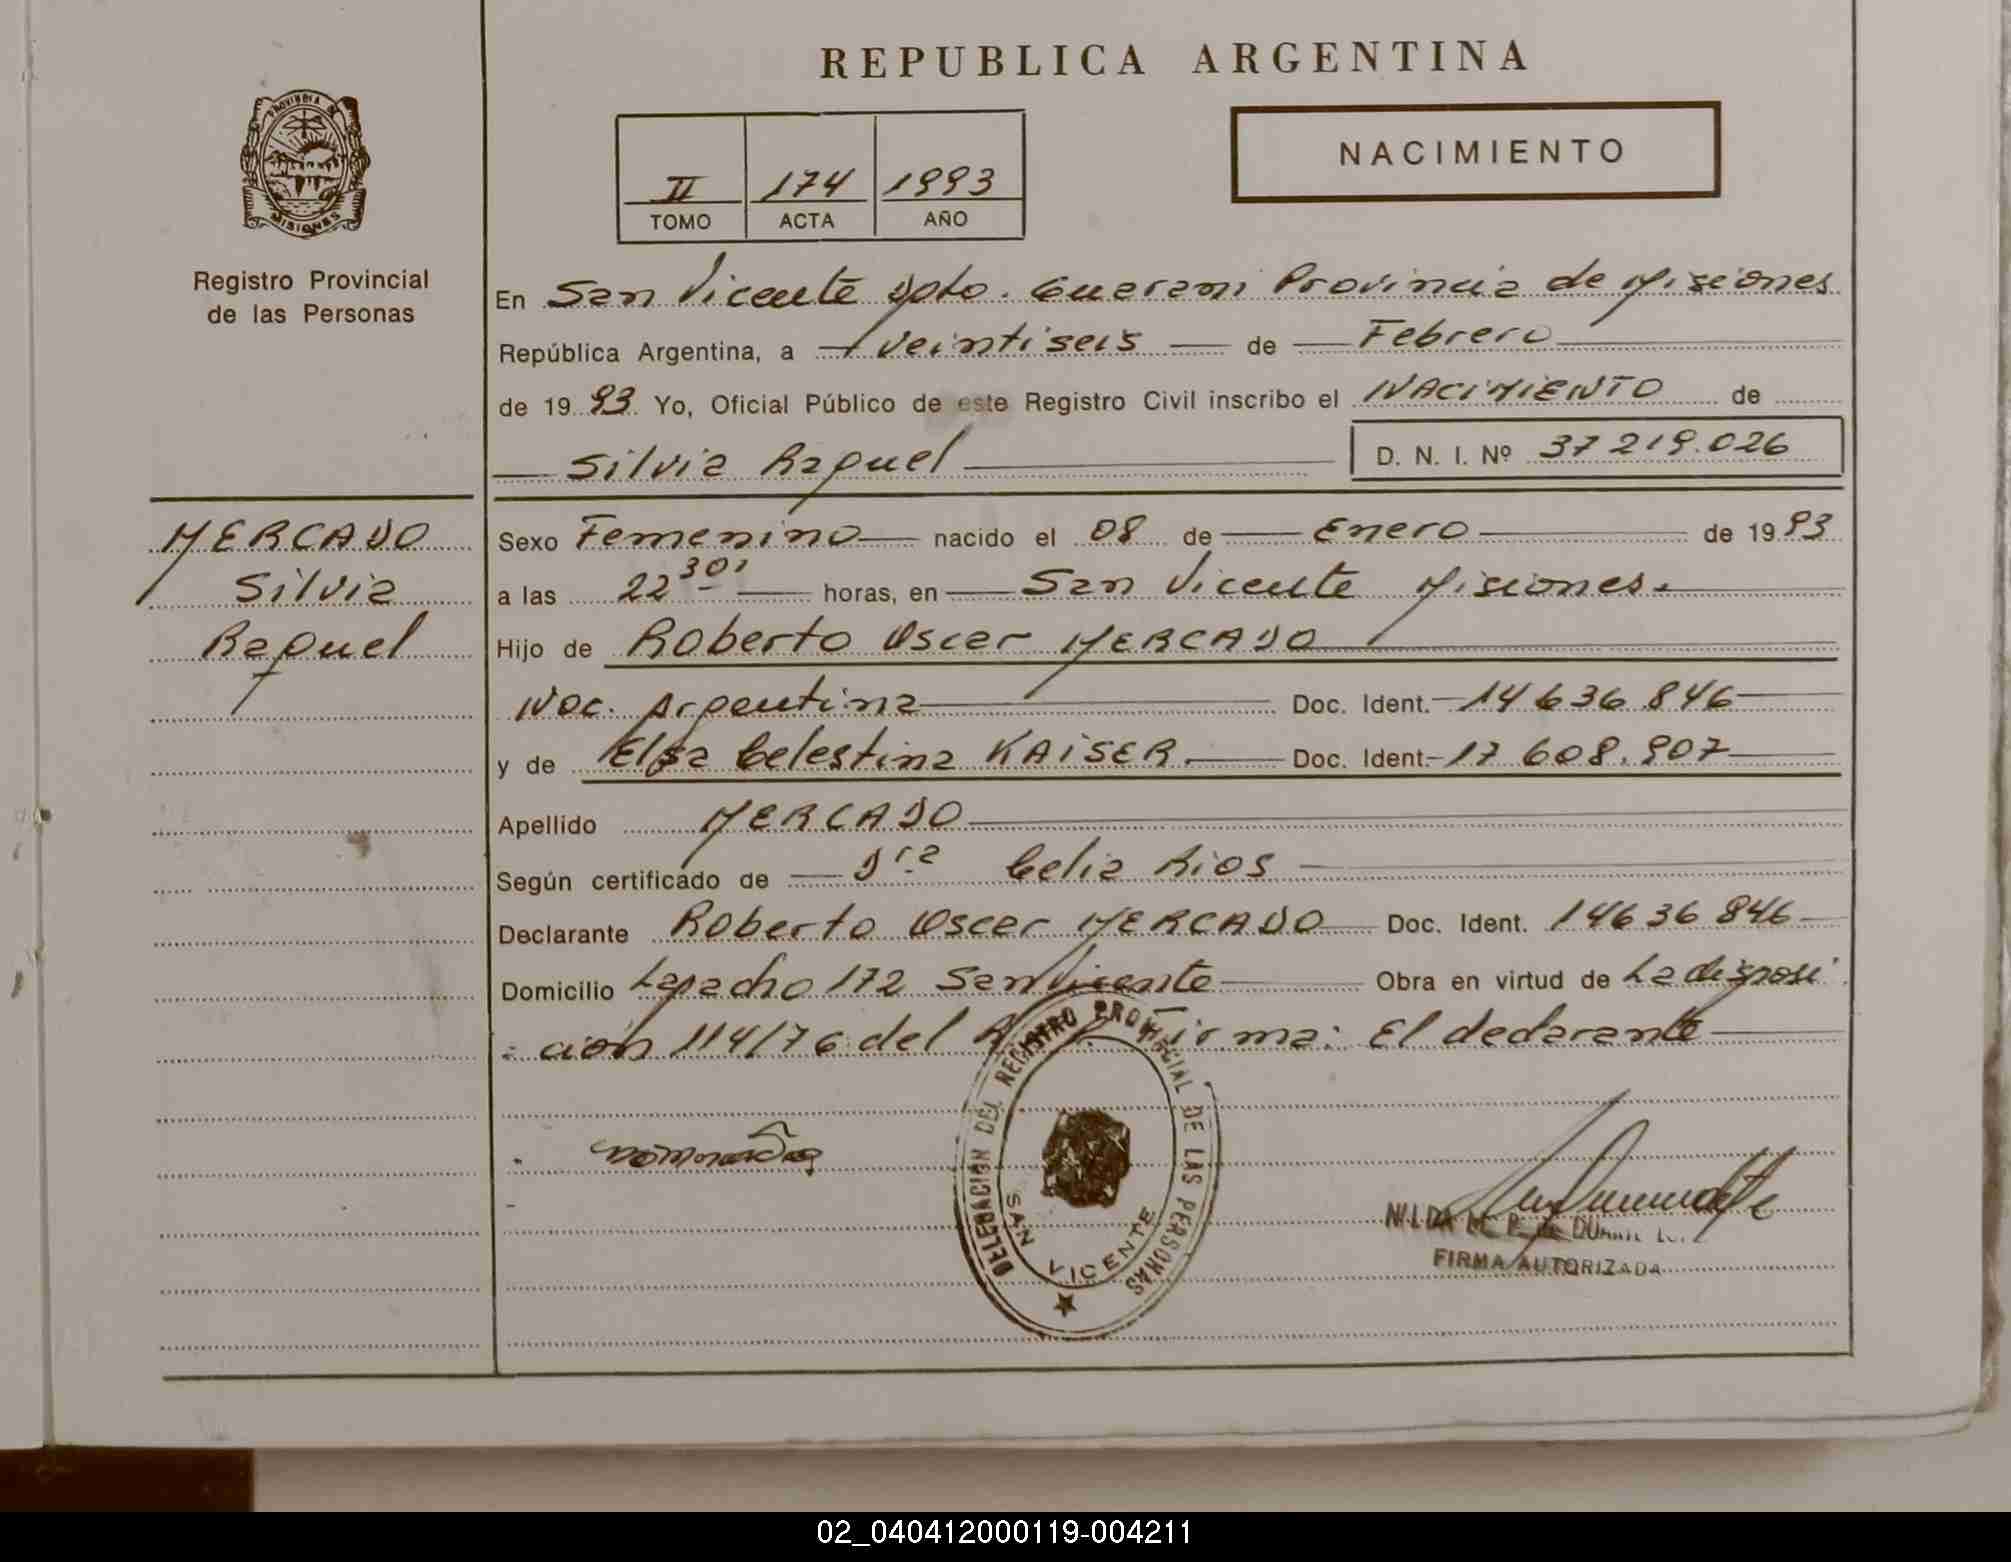 REPUBLICA ARGENTINA
PROVINCIA DE
MISIONES
Registro Provincial
de las Personas
II 174 1993
TOMO ACTA AÑO
NACIMIENTO
En San Vicente Dpto. Guarani Provincia de Misiones
República Argentina, a veintiseis de Febrero
de 1993 Yo, Oficial Público de este Registro Civil inscribo el NACIMIENTO de
Silvia Raquel D. N. I. Nº 37 219.026
MERCADO
Silvia
Raquel
Sexo Femenino nacido el 08 de Enero de 1993
a las 22 30' horas, en San Vicente Misiones.
Hijo de Roberto Oscar MERCADO
Nac. Argentina Doc. Ident. 14 636 846
y de Elsa Celestina KAISER. Doc. Ident. 17 608.907
Apellido MERCADO
Según certificado de Dra Celia Rios
Declarante Roberto Oscar MERCADO Doc. Ident. 14636 846
Domicilio Lapacho 172 San Vicente Obra en virtud de La disposi
ción 114/76 del Firma: El declarante
DELEGACION DEL REGISTRO PROVINCIAL DE LAS PERSONAS
SAN VICENTE
NILDA
FIRMA AUTORIZADA
02_040412000119-004211